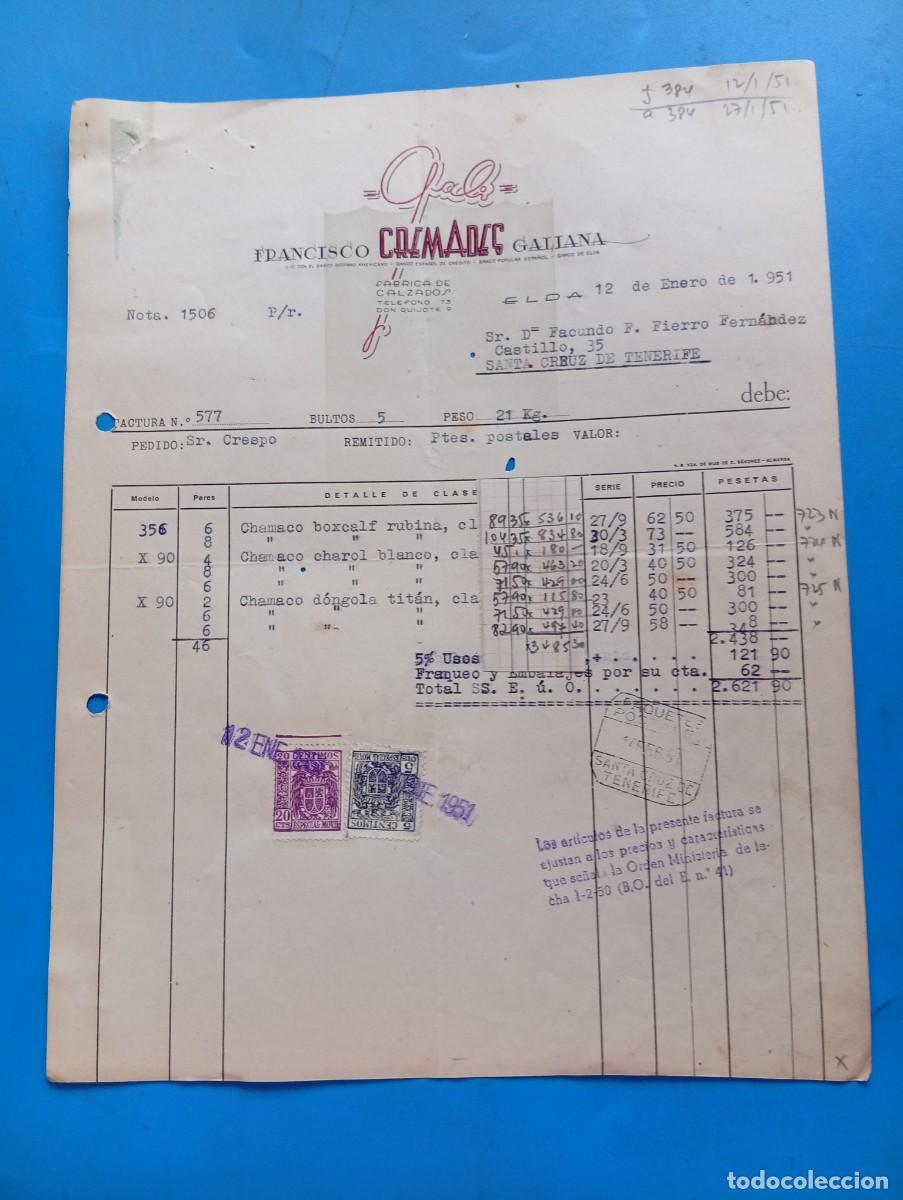 f 384 12/1/51
a 384 27/1/51
FRANCISCO CREMADES GALIANA
C/C CON EL BANCO HISPANO AMERICANO - BANCO ESPAÑOL DE CRÉDITO - BANCO POPULAR ESPAÑOL - BANCO DE ELDA
FABRICA DE
CALZADOS
TELEFONO 73
DON QUIJOTE 9
Nota. 1506 P/r.
ELDA 12 de Enero de 1.951
Sr. Dº Facundo F. Fierro Fernández
Castillo, 35
SANTA CRUZ DE TENERIFE
debe:
FACTURA N.º 577 BULTOS 5 PESO 21 Kg.
PEDIDO: Sr. Crespo REMITIDO: Ptes. postales VALOR:
Modelo Pares DETALLE DE CLASE SERIE PRECIO PESETAS
356 6 Chamaco boxcalf rubina, cl 89 35 x 536 10 27/9 62 50 375 -- 723 N
8 " " " 104 35 x 834 80 30/3 73 -- 584 -- "
X 90 4 Chamaco charol blanco, cla 45 1 x 180 - 18/9 31 50 126 -- 724 N
8 " " " 57 90 x 463 20 20/3 40 50 324 -- "
6 " " " 71 50 x 429 00 24/6 50 -- 300 -- "
X 90 2 Chamaco dóngola titán, cla 57 90 x 115 80 23 40 50 81 -- 725 N
6 " " " 71 50 x 429 00 24/6 50 -- 300 -- "
6 " " " 82 90 x 497 40 27/9 58 -- 348 -- "
46 x3485 30 2.438 --
5% Usos ,+ . . . . . 121 90
Franqueo y Embalajes por su cta. 62 --
Total SS. E. ú. O. . . . . . . . 2.621 90
12 ENE. 1951
20 CTS
20 CTS
ESPECIAL MOVIL
5 CTS
ESPECIAL MOVIL
5 CENTIMOS
PAQUETES
SANTA CRUZ DE
TENERIFE
Los artículos de la presente factura se
ajustan a los precios y características
que señala la Orden Ministeria de fe-
cha 1-2-50 (B.O. del E. n.º 41)
X
todocoleccion